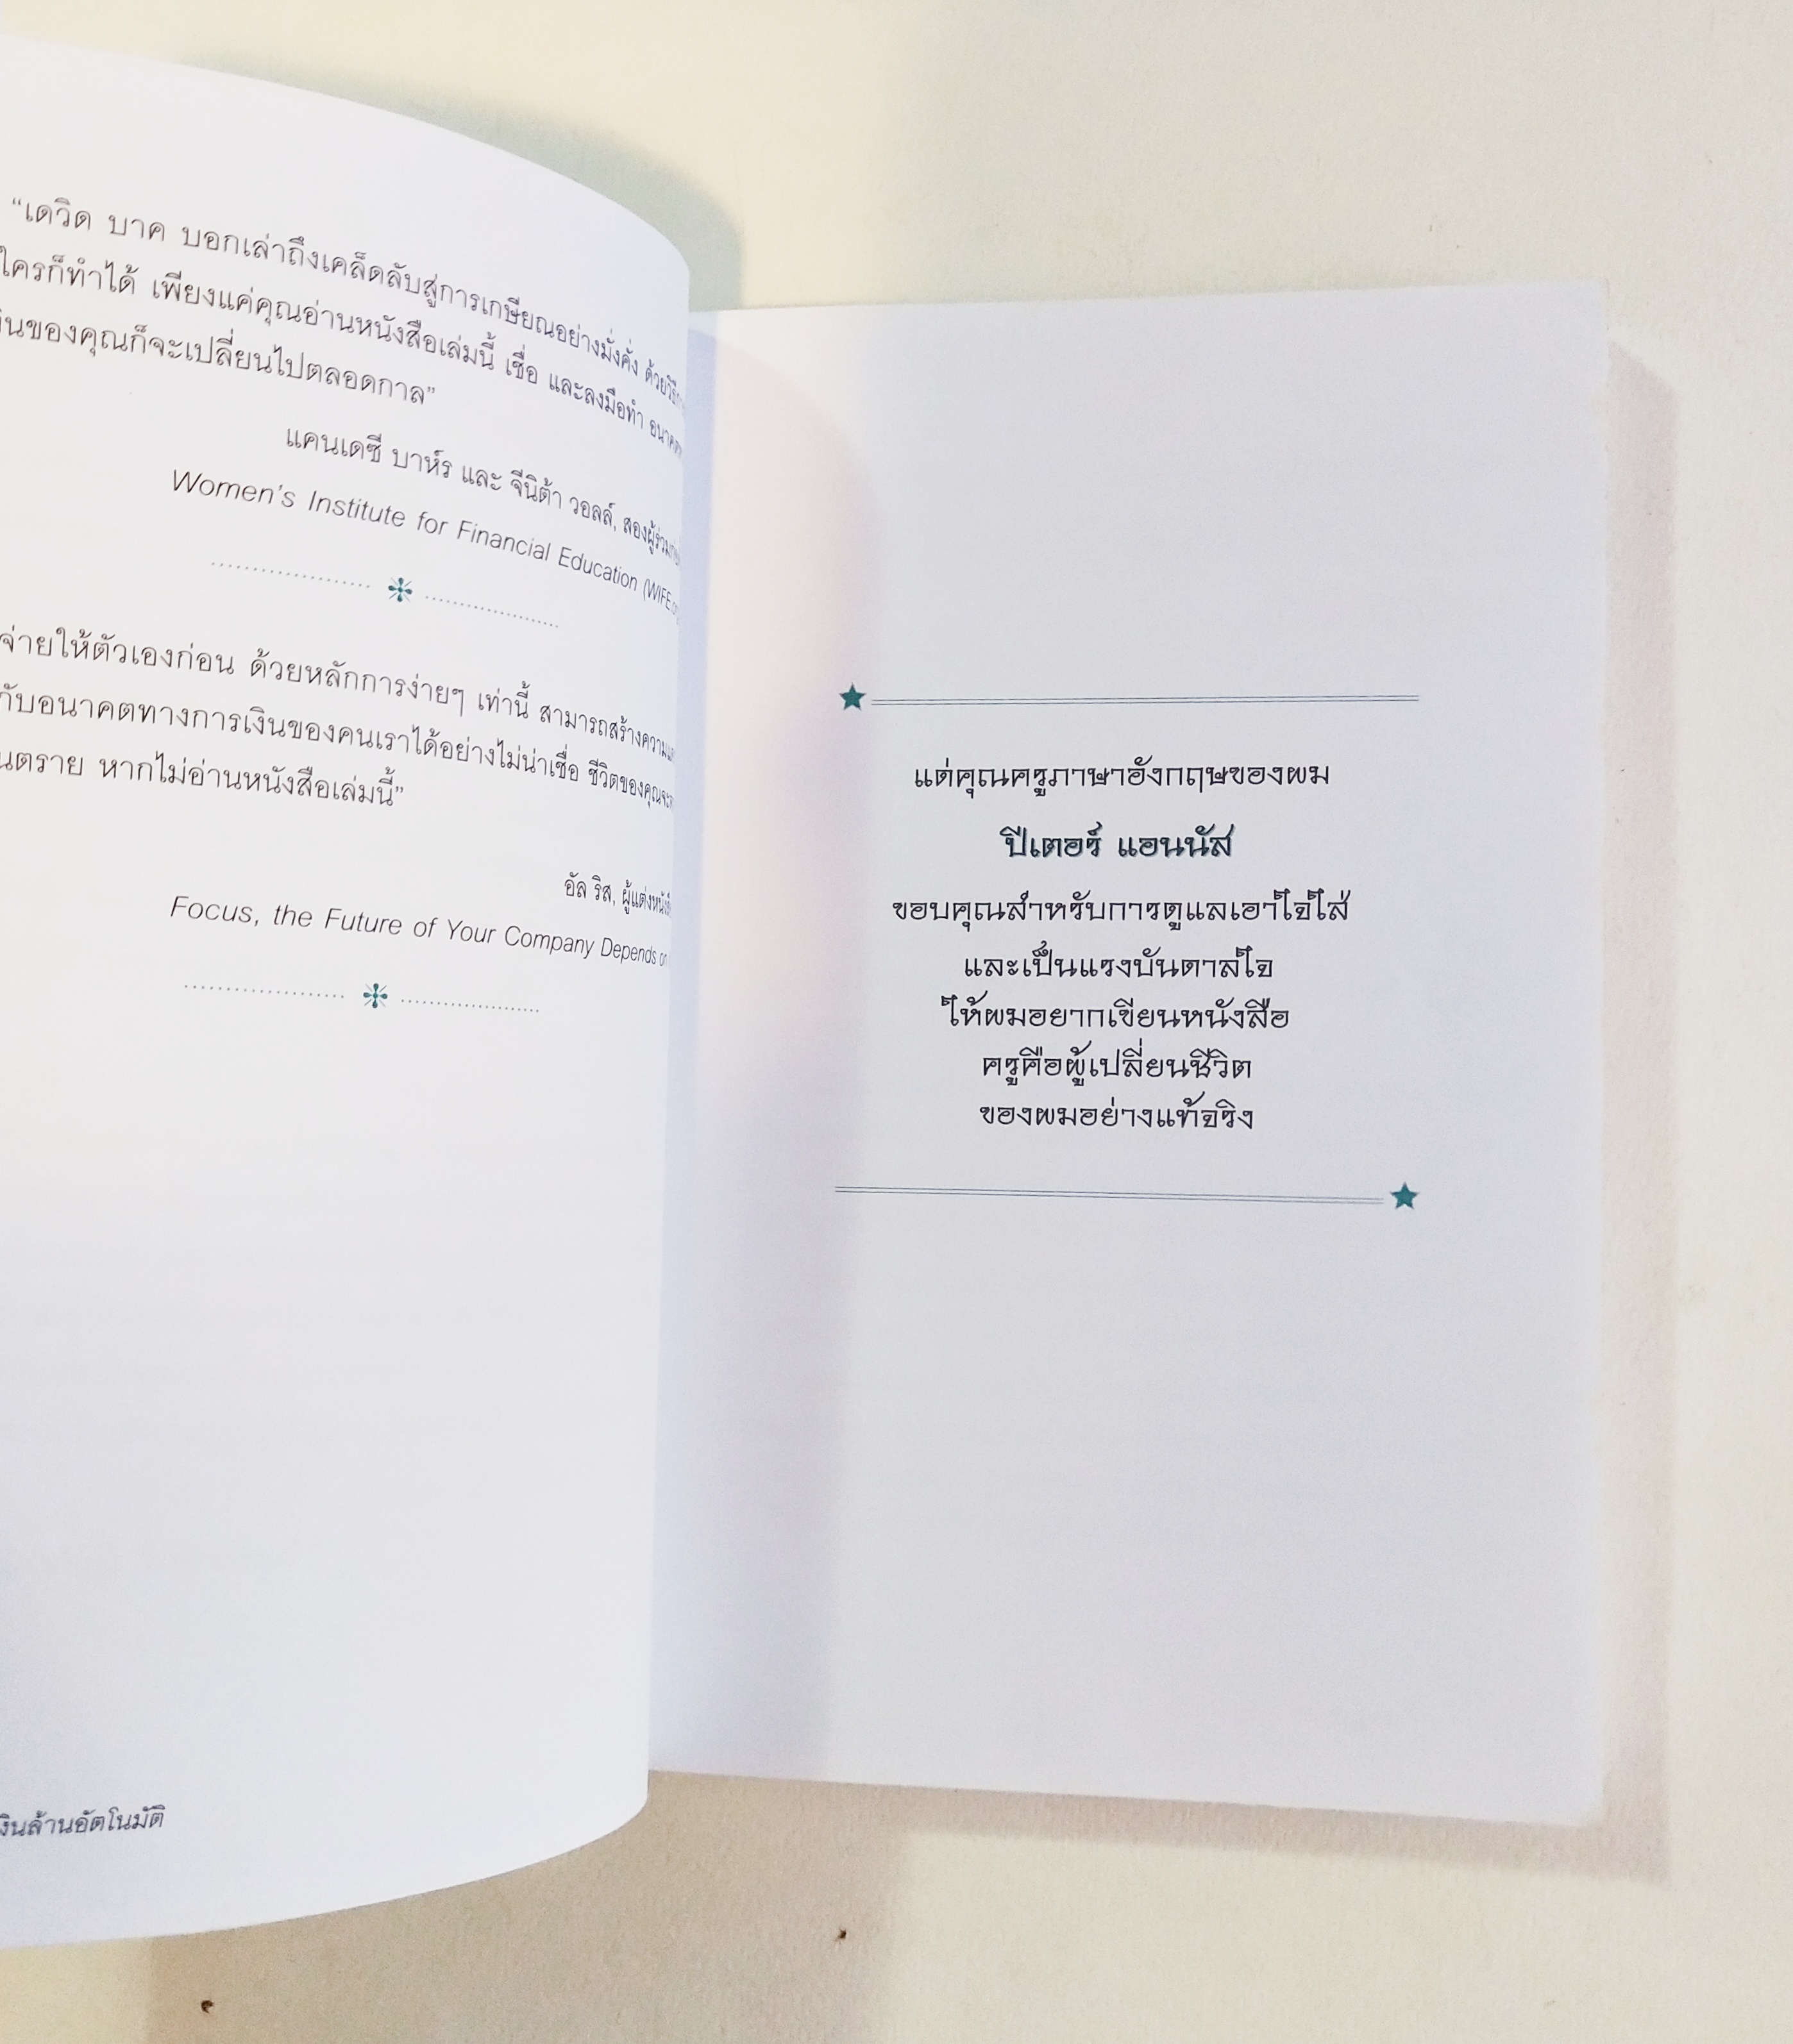 “เดวิด บาค บอกเล่าถึงเคล็ดลับสู่การเกษียณอย่างมั่งคั่ง
ใครก็ทำได้ เพียงแค่คุณอ่านหนังสือเล่มนี้ เชื่อ และลงมือทำ
ของคุณก็จะเปลี่ยนไปตลอดกาล”
แคนเดซี บาห์ร และ จีนิต้า วอลล์,
Women’s Institute for Financial Education
จ่ายให้ตัวเองก่อน ด้วยหลักการง่ายๆ เท่านี้ สามารถสร้าง
กับอนาคตทางการเงินของคนเราได้อย่างไม่น่าเชื่อ ชีวิตของคุณ
หากไม่อ่านหนังสือเล่มนี้”
อัล ริส, ผู้แต่ง
Focus, the Future of Your Company Depends
ล้านอัตโนมัติ
แด่คุณครูภาษาอังกฤษของผม
ปีเตอร์ แอนนัส
ขอบคุณสำหรับการดูแลเอาใจใส่
และเป็นแรงบันดาลใจ
ให้ผมอยากเขียนหนังสือ
ครูคือผู้เปลี่ยนชีวิต
ของผมอย่างแท้จริง